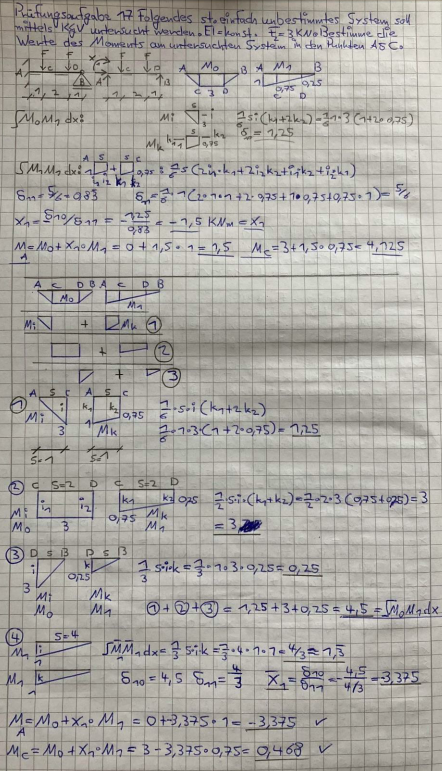 Prüfungsaufgabe 17 Folgendes st. einfach unbestimmtes System soll
mittels KgV untersucht werden. EI=konst. F=3KN. Bestimme die
Werte des Moments am untersuchten System in den Punkten A & C.
A C D F B A C D B A M0 B A M1 B
1, 2, 1 1, 2, 1 C 3 D 1 0,75 0,25
C D
∫M0M1dx: Mi 3 1/6 si(k1+2k2)=1/6·1·3(1+2·0,75)
Mk k1=1 k2 0,75 = 1,25
∫M1M1dx: A S + S C 0,75 = 1/6 s(2i1k1+2i2k2+i1k2+i2k1)
i1 i2 k1 k2
δ11=5/6=0,83 δ11=1/6·1(2·1·1+2·0,75+1·0,75+0,75·1)=5/6
X1=δ10/δ11=-1,25/0,83=-1,5 KNm=X1
M=M0+X1·M1=0+1,5·1=1,5 Mc=3+1,5·0,75=4,125
A
A C D B A C D B
M0 M1
Mi + Mk ①
+ ②
+ ③
① A S C A S C
Mi i k1 k2 0,75 1/6·s·i(k1+2k2)
3 1 Mk 1/6·1·3(1+2·0,75)=1,25
S=1 S=1
② C S=2 D C S=2 D
Mi i1 i2 k1 k2 0,25 1/2 s·i·(k1+k2)=1/2·2·3(0,75+0,25)=3
M0 3 0,75 Mk M1 = 3
③ D S B D S B
i 3 k 0,25 1/3 s·i·k=1/3·1·3·0,25=0,25
Mi Mk
M0 M1 ①+②+③=1,25+3+0,25=4,5=∫M0M1dx
④ S=4
M1 i 1 ∫M̄M1dx=1/3 s·i·k=1/3·4·1·1=4/3=1,3
M1 k 1 δ10=4,5 δ11=4/3 X1=δ10/δ11=-4,5/4/3=-3,375
M=M0+X1·M1=0+-3,375·1=-3,375 ✓
A
Mc=M0+X1·M1=3-3,375·0,75=0,468 ✓